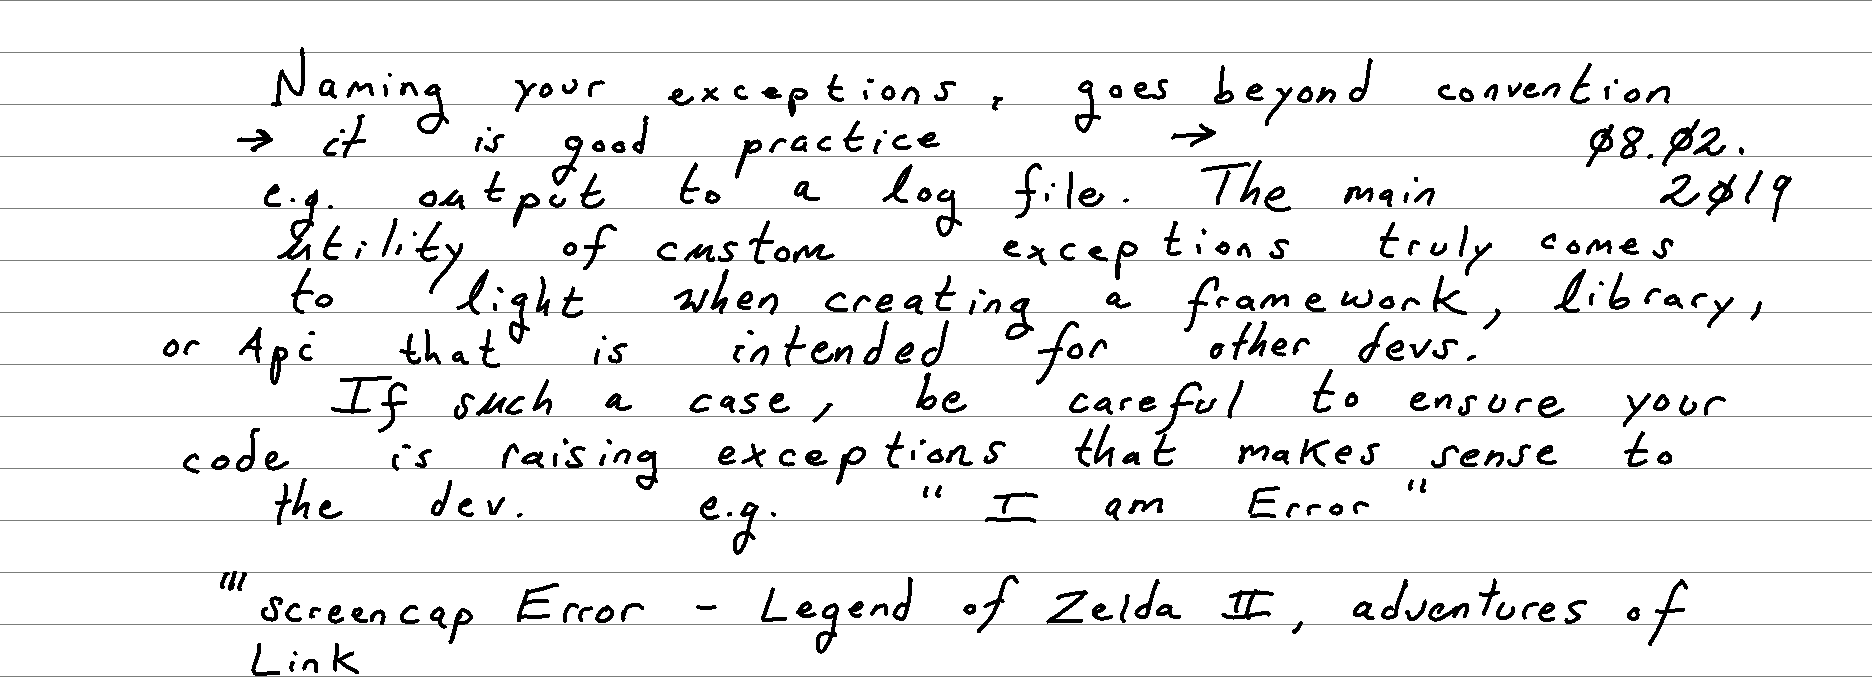 Naming your exceptions, goes beyond convention
→ it is good practice → 08.02.
e.g. output to a log file. The main 2019
utility of custom exceptions truly comes
to light when creating a framework, library,
or Api that is intended for other devs.
If such a case, be careful to ensure your
code is raising exceptions that makes sense to
the dev. e.g. "I am Error"
"'screencap Error - Legend of Zelda II, adventures of
Link